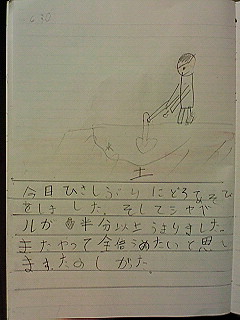 6.30
土
今日ひさしぶりにどろあそび
をしました。そしてシャベ
ルが半分以上うまりました。
またやって全倍うめたいと思い
ますたのしかった